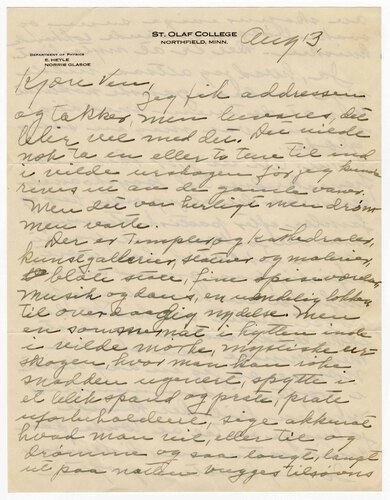 ST. OLAF COLLEGE
NORTHFIELD, MINN.
Aug 3
DEPARTMENT OF PHYSICS
E. HEYLE
NORRIS GLASOE
Kjære Ven,
Jeg fik addressen
og takker, men bevares, det
blir vel med det. Du vilde
nok ta en eller to ture til ind
i vilde urskogen før jeg kunde
rives ut av de gamle vaner.
Men det var herligt men drøm
men varte.
Der er templer og Kathedraler,
kunstgallerier, statuer og malerier,
blåte stole, fine spiseværelser
Musik og dans, en uendelig lokken
til overdaadig nydelse. Men
en sommernat i hytten inde
i vilde mørke, mystiske ur-
skogen, hvor man kan ryke
snadden ugenert, spytte i
et blikspand og prate, prate
uforbeholdent, sige akkurat
hvad man vil, eller tie og
drømme og saa langt, langt
ut paa natten vugges tilsøvns